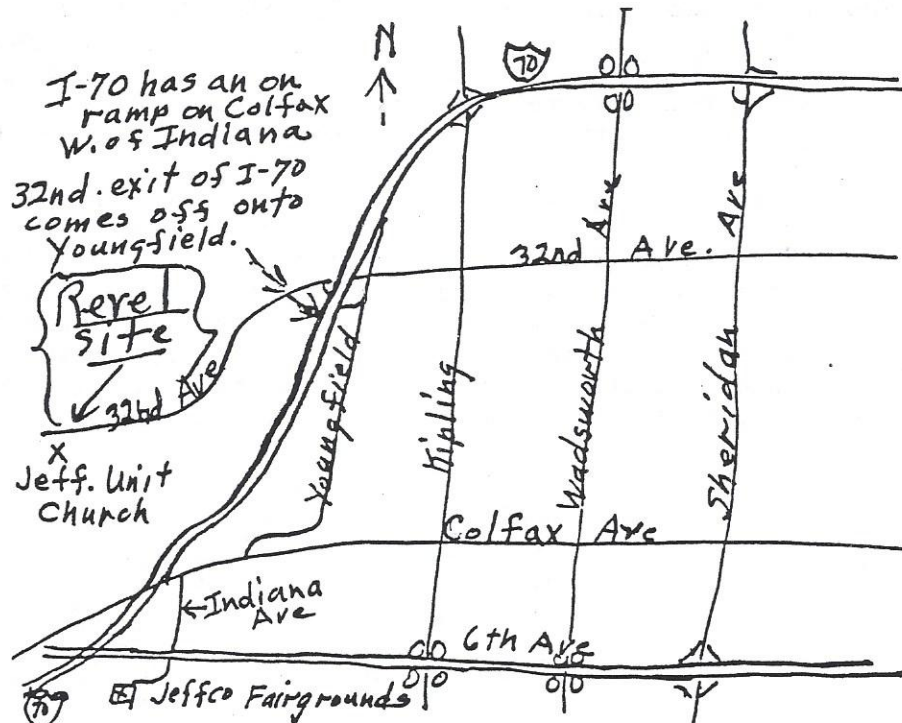 N
70
I-70 has an on
ramp on Colfax
W. of Indiana
32nd. exit of I-70
comes off onto
Youngfield.
Revel
site
32nd Ave
X
Jeff. Unit
Church
32nd Ave.
Youngfield
Kipling
Wadsworth Ave
Sheridan Ave
Colfax Ave
←Indiana
Ave
6th Ave
70
Jeffco Fairgrounds